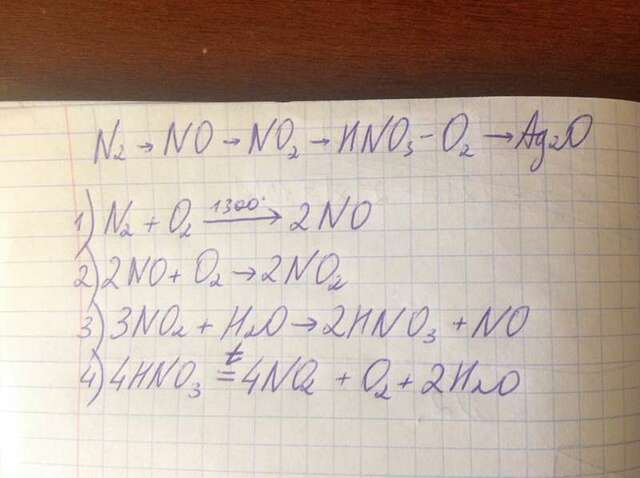 N₂ → NO → NO₂ → HNO₃ - O₂ → Ag₂O
1) N₂ + O₂ 1300° → 2NO
2) 2NO + O₂ → 2NO₂
3) 3NO₂ + H₂O → 2HNO₃ + NO
4) 4HNO₃ t = 4NO₂ + O₂ + 2H₂O